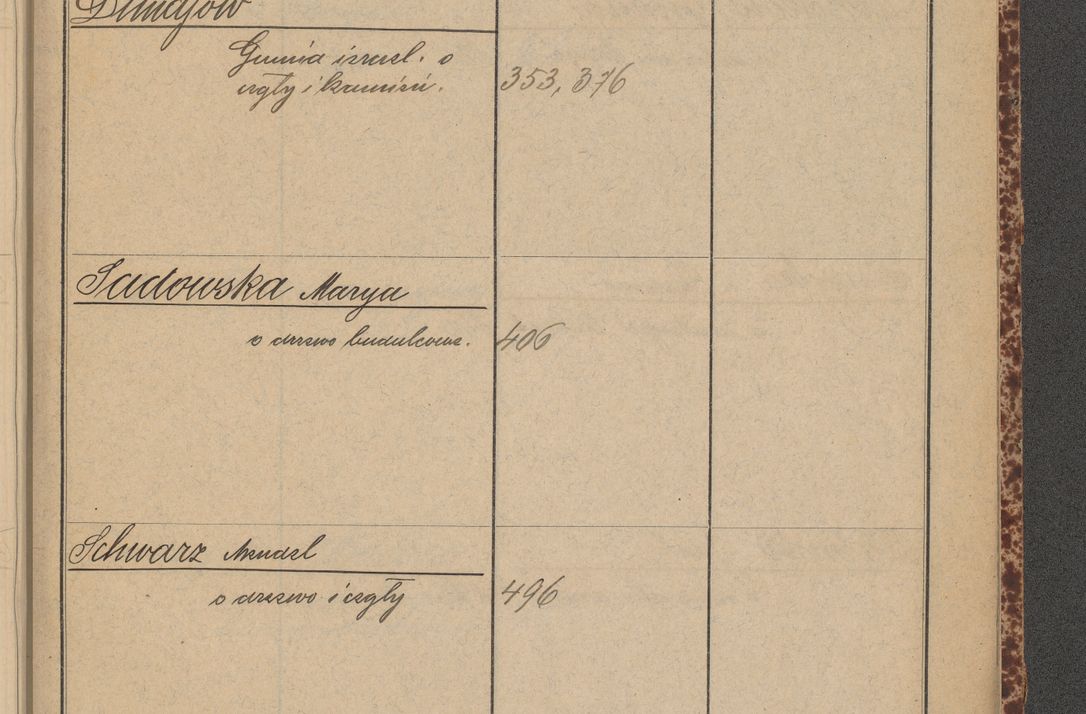 Dunajów
Gmina izrael. o
cegły i kamień. 353, 376
Sadowska Marya
o drzewo budulcowe. 406
Schwarz Mendel
o drzewo i cegły 496